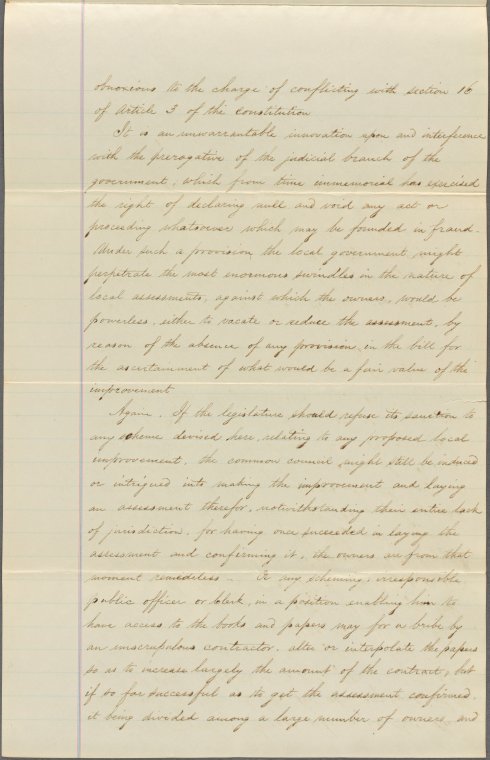 obnoxious to the charge of conflicting with section 16
of Article 3 of the Constitution
It is an unwarrantable innovation upon and interference
with the prerogative of the judicial branch of the
government, which from time immemorial has exercised
the right of declaring null and void any act or
proceeding whatsoever which may be founded in fraud.
Under such a provision the local government might
perpetrate the most enormous swindles in the nature of
local assessments, against which the owners, would be
powerless, either to vacate or reduce the assessment, by
reason of the absence of any provision in the bill for
the ascertainment of what would be a fair value of the
improvement
Again. If the legislature should refuse its sanction to
any scheme devised here, relating to any proposed local
improvement, the common council might still be induced
or intrigued into making the improvement and laying
an assessment therefor, notwithstanding their entire lack
of jurisdiction, for having once succeeded in laying the
assessment and confirming it, the owners are from that
moment remediless. Or any scheming, irresponsible
public officer or clerk, in a position enabling him to
have access to the books and papers may for a bribe by
an unscrupulous contractor, alter or interpolate the papers
so as to increase largely the amount of the contract, but
if so far successful as to get the assessment confirmed,
it being divided among a large number of owners, and